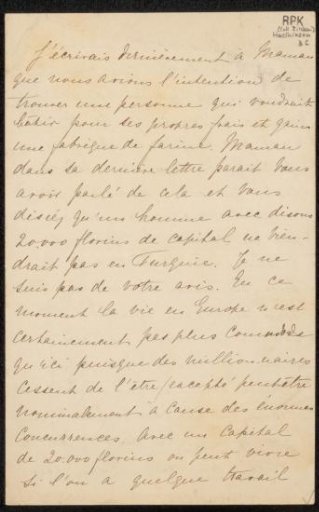 RPK
J'écrivais dernièrement à Maman
que nous avions l'intention de
trouver une personne qui voudrait
bâtir pour ses propres frais et gains
une fabrique de farine. Maman
dans sa dernière lettre parait vous
avoir parlé de cela et vous
disiez qu'un homme avec disons
20.000 florins de capital ne vien-
drait pas en Turquie. Je ne
suis pas de votre avis. En ce
moment la vie en Europe n'est
certainement pas plus commode
qu'ici puisque des millionnaires
cessent de l'être (excepté peutêtre
nominalement) à cause des énormes
concurrences. Avec un capital
de 20.000 florins on peut vivre
si l'on a quelque travail